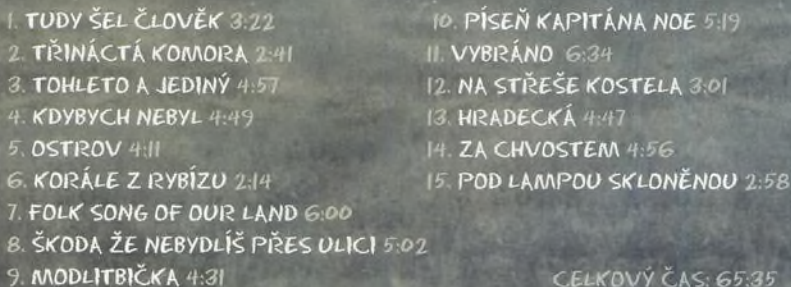 1. TUDY ŠEL ČLOVĚK 3:22
2. TŘINÁCTÁ KOMORA 2:41
3. TOHLETO A JEDINÝ 4:57
4. KDYBYCH NEBYL 4:49
5. OSTROV 4:11
6. KORÁLE Z RYBÍZU 2:14
7. FOLK SONG OF OUR LAND 6:00
8. ŠKODA ŽE NEBYDLÍŠ PŘES ULICI 5:02
9. MODLITBIČKA 4:31
10. PÍSEŇ KAPITÁNA NOE 5:19
11. VYBRÁNO 6:34
12. NA STŘEŠE KOSTELA 3:01
13. HRADECKÁ 4:47
14. ZA CHVOSTEM 4:56
15. POD LAMPOU SKLONĚNOU 2:58
CELKOVÝ ČAS: 65:35